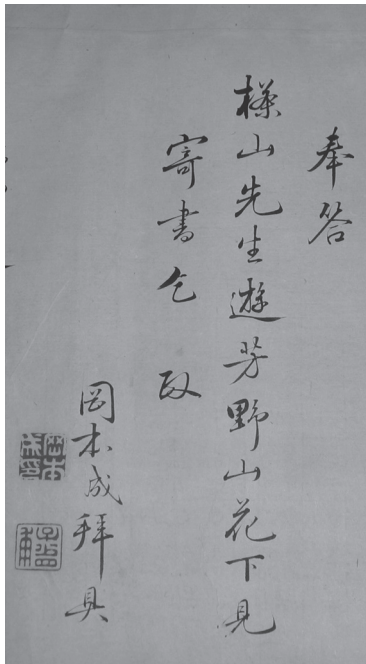 奉答
山先生遊芳野山花下見
寄書乞政
岡本成拜具
岡本成印